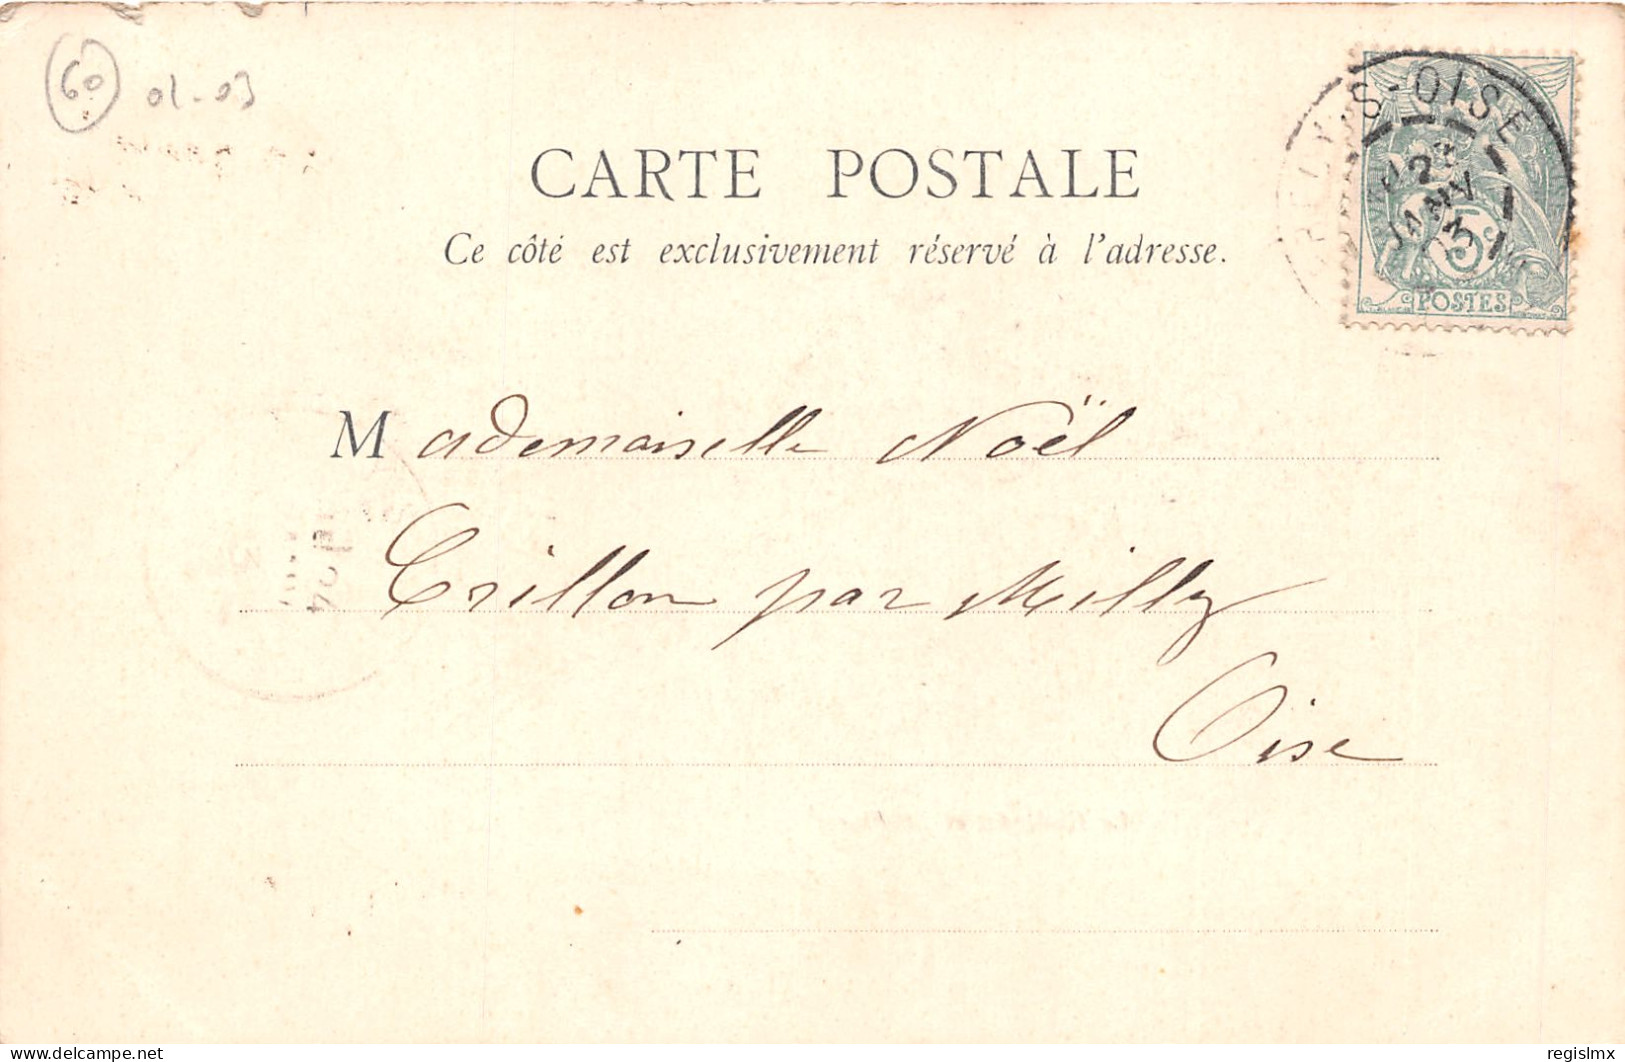 60 01-03
CARTE POSTALE
Ce côté est exclusivement réservé à l'adresse.
S-OISE
JANV
5c
POSTES
Mademoiselle Noël
Crillon par Milly
Oise
delcampe.net
regislmx